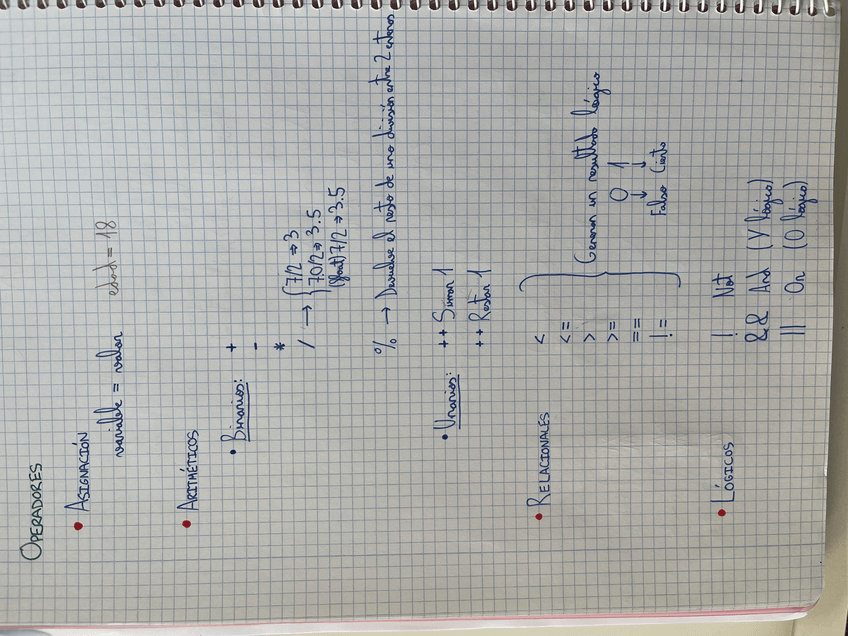 OPERADORES
• ASIGNACIÓN
variable = valor edad = 18
• ARITMÉTICOS
• Binarios: +
-
*
/ → { 7/2 ⇒ 3
7.0/2 ⇒ 3.5
(float) 7/2 ⇒ 3.5
% → Devuelve el resto de una división entre 2 enteros
• Unarios: ++ Sumar 1
++ Restar 1
• RELACIONALES <
<=
> Generan un resultado lógico
>= 0 1
== ↓ ↓
!= Falso Cierto
• LÓGICOS ! Not
&& And (Y lógico)
|| Or (O lógico)